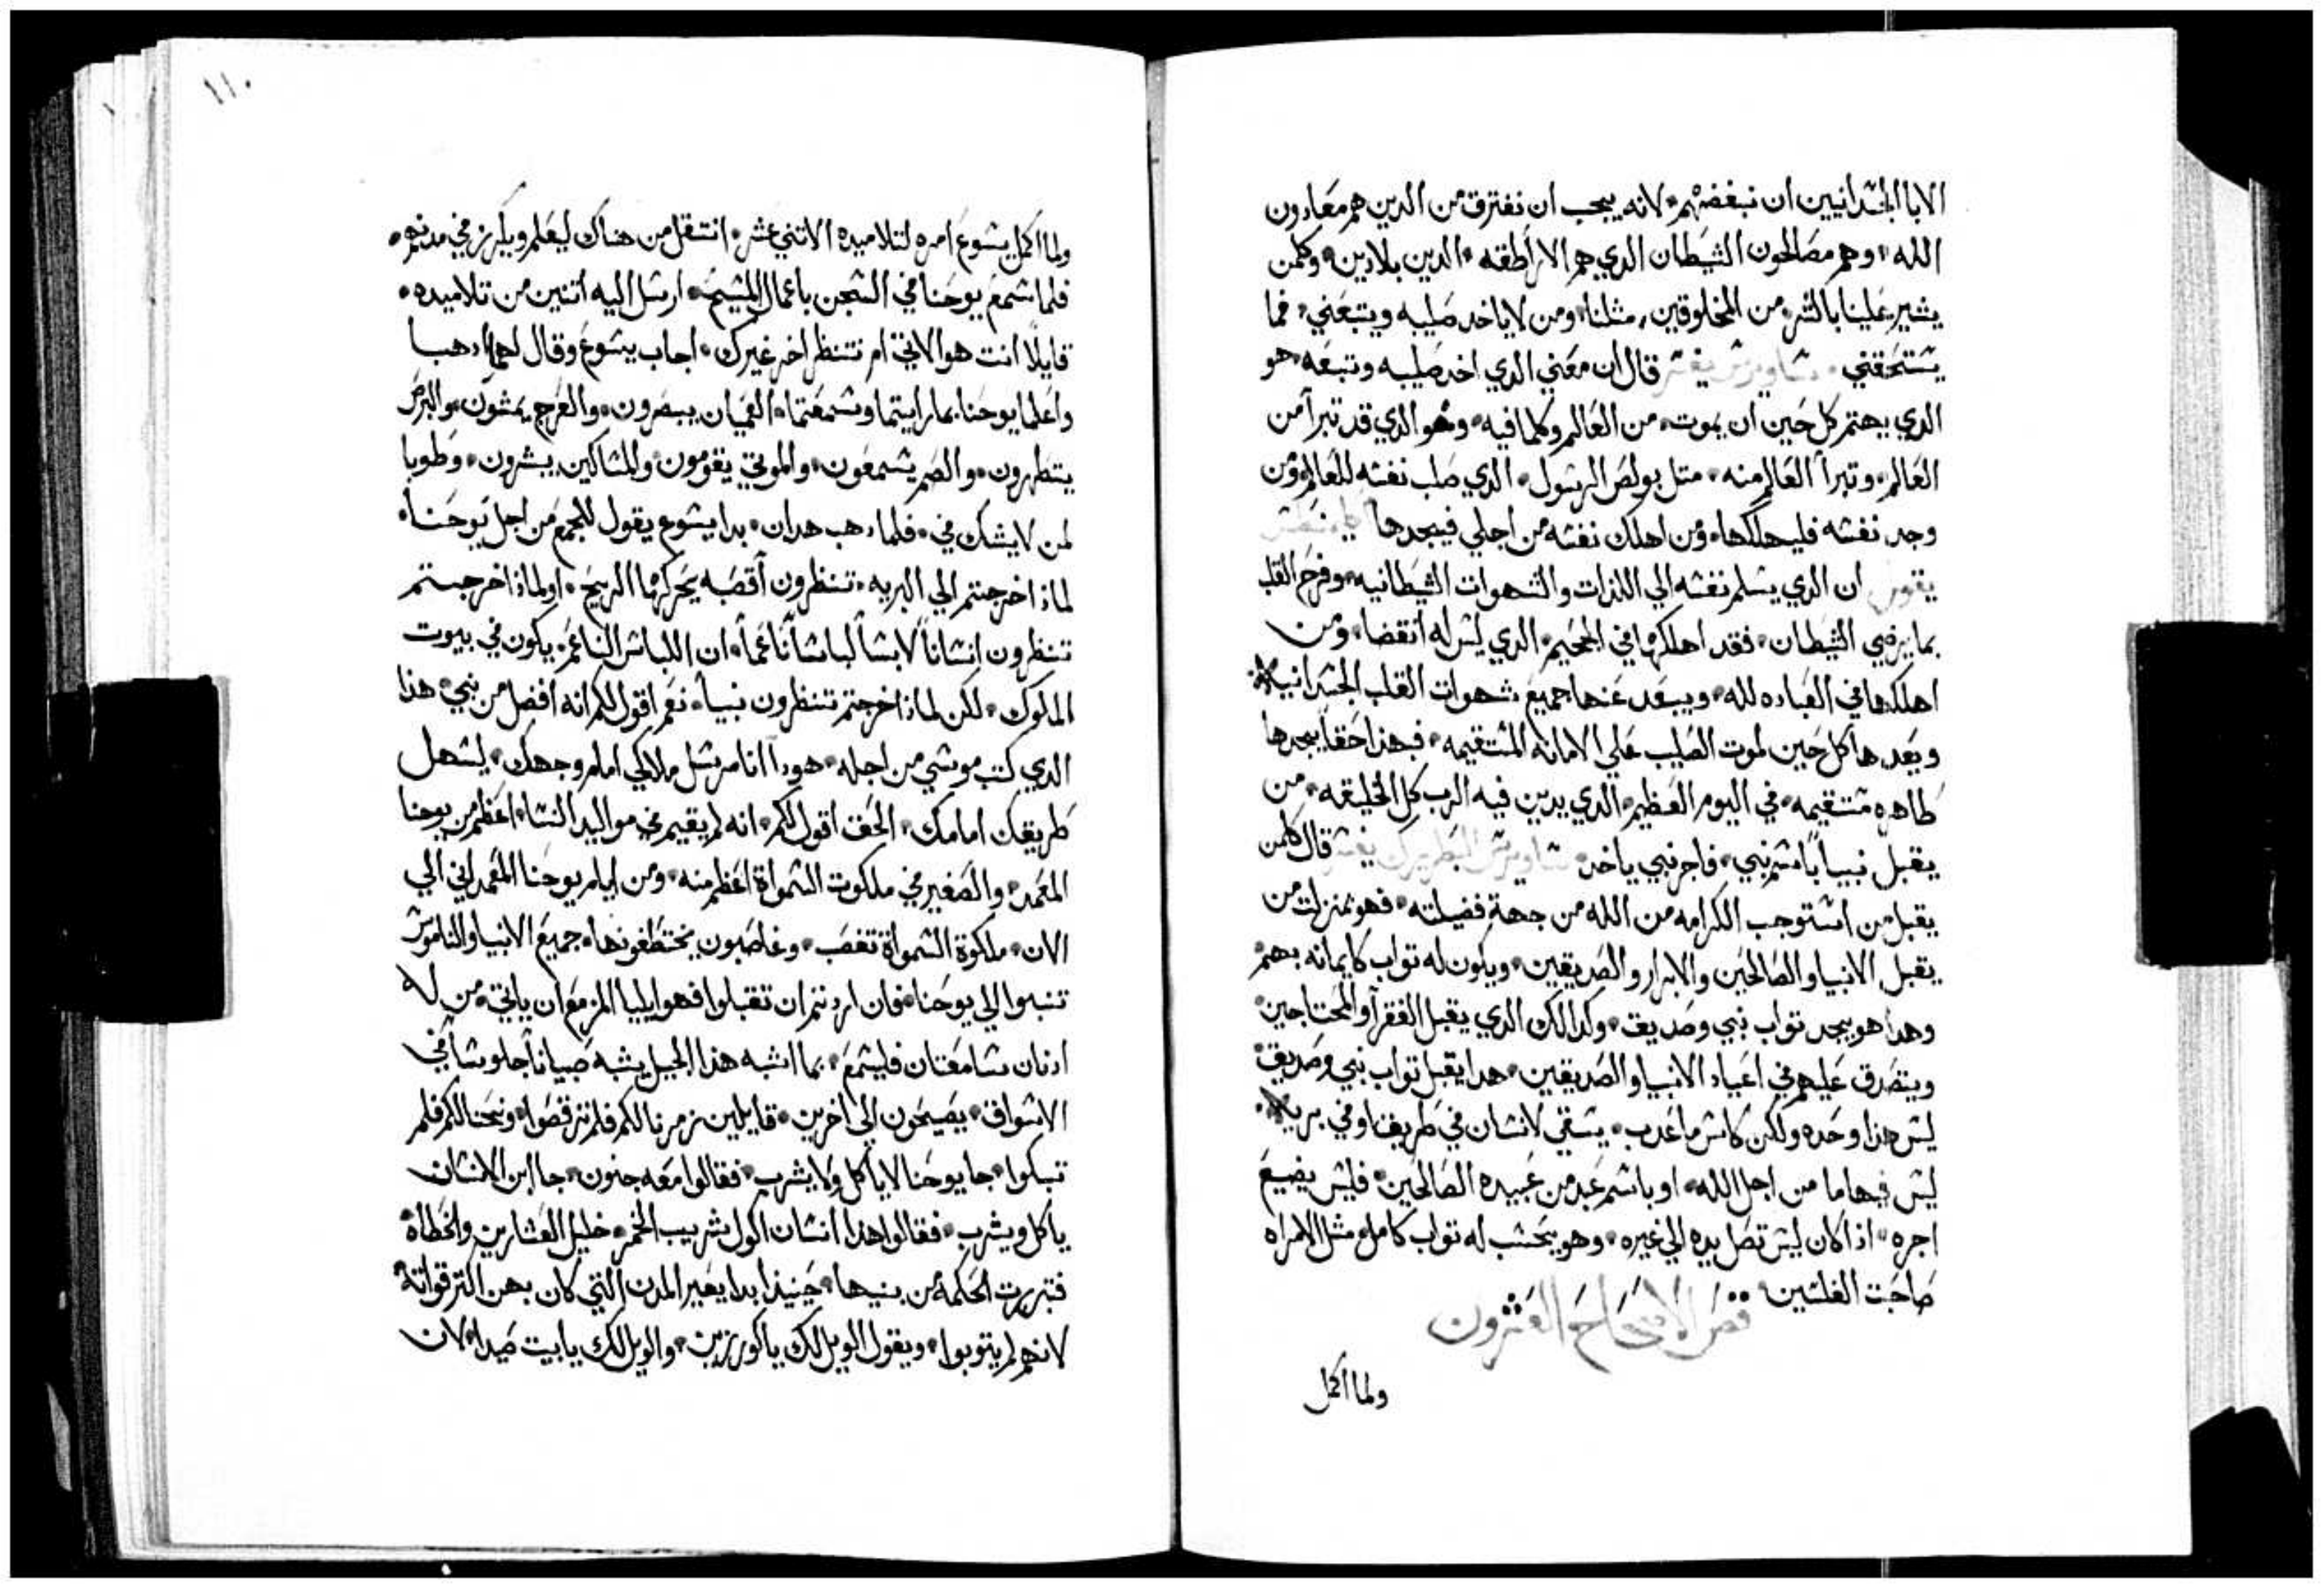 الابا الجسدانيين ان نبغضهم لانه يجب ان نفترق من الدين هم معادون
الله وهم مصالحون الشيطان الدي هم الاراطقه الدين بلادين وكلمن
يشير علينا بالشر من المخلوقين مثلنا ومن لاياخد صليبه ويتبعني فما
يستحقني ساويرس يفسر قال ان معني الدي اخد صليبه وتبعه هو
الدي يهتم كل حين ان يموت من العالم وكلمافيه وهو الدي قد تبرا من
العالم وتبرا العالم منه متل بولص الرسول الدي صلب نفسه للعالم ومن
وجد نفسه فليهلكها ومن اهلك نفسه من اجلي فيجدها
يقول ان الدي يسلم نفسه الي اللدات والشهوات الشيطانيه وفرح القلب
بما يرضي الشيطان فقد اهلكها في الجحيم الدي ليس له انقضا ومن
اهلكها في العباده لله ويبعد عنها جميع شهوات القلب الجسدانيه
ويعدها كل حين لموت الصليب علي الامانه المستقيمه فهذا حقا يجدها
طاهره مستقيمه في اليوم العظيم الدي يدين فيه الرب كل الخليقه من
يقبل نبيا باسم نبي فاجر نبي ياخد ساويرس البطريرك يفسر قال كلمن
يقبل من استوجب الكرامه من الله من جهة فضيلته فهو بمنزلت من
يقبل الانبيا والصالحين والابرار والصديقين ويكون له تواب كايمانه بهم
وهدا هو يجد تواب نبي وصديق وكدالك الدي يقبل الفقرا والمحتاجين
ويتصدق عليهم في اعياد الانبيا والصديقين هدا يقبل تواب نبي وصديق
ليس هذا وحده ولكن كاس ما عدب يسقي لانسان في طريق او في بريه
ليس فيها ما من اجل الله او باسم عبد من عبيده الصالحين فليس يضيع
اجره اذا كان ليس تصل يده الي غيره وهو يحسب له تواب كامل مثل الامراه
صاحبت الفلسين فص الاصحاح العشرون
ولما اكمل
١١٠
ولما اكمل يسوع امره لتلاميده الاتني عشر انتقل من هناك ليعلم ويكرز في مدنهم
فلما سمع يوحنا في السجن باعمال المسيح ارسل اليه اتنين من تلاميده
قايلا انت هو الاتي ام ننتظر اخر غيرك اجاب يسوع وقال لهما ادهبا
واعلما يوحنا بما رايتما وسمعتما العميان يبصرون والعرج يمشون والبرص
يتطهرون والصم يسمعون والموتي يقومون والمساكين يبشرون وطوبا
لمن لايشك في فلما دهب هدان بدا يسوع يقول للجمع من اجل يوحنا
لماذا خرجتم الي البريه تنظرون أقصبه يحركها الريح اولماذا خرجتم
تنظرون انسانا لابسا لباسا ناعما ان اللباس الناعم يكون في بيوت
الملوك لكن لماذا خرجتم تنظرون نبيا نعم اقول لكم انه افضل من نبي هذا
الدي كتب موسي من اجله هودا انا مرسل ملاكي امام وجهك ليسهل
طريقك امامك الحق اقول لكم انه لم يقيم في مواليد النسا اعظم من يوحنا
المعمد والصغير في ملكوت السمواة اعظم منه ومن ايام يوحنا المعمداني الي
الان ملكوة السمواة تغصب وغاصبون يختطفونها جميع الانبيا والناموس
تنبوا الي يوحنا فان اردتم ان تقبلوا فهو ايليا المزمع ان ياتي من له
ادنان سامعتان فليسمع بما اشبه هذا الجيل يشبه صبيانا جلوسا في
الاسواق يصيحون الي اخرين قايلين زمرنا لكم فلم ترقصوا ونحنا لكم فلم
تبكوا جا يوحنا لاياكل ولا يشرب فقالوا معه جنون جا ابن الانسان
ياكل ويشرب فقالوا هدا انسان اكول شريب الخمر خليل العشارين والخطاة
فتبررت الحكمة من بنيها حينيذا بدا يعير المدن التي كان بهن اكتر قواته
لانهم لم يتوبوا ويقول الويل لك ياكورزين والويل لك يابيت صيدا لان